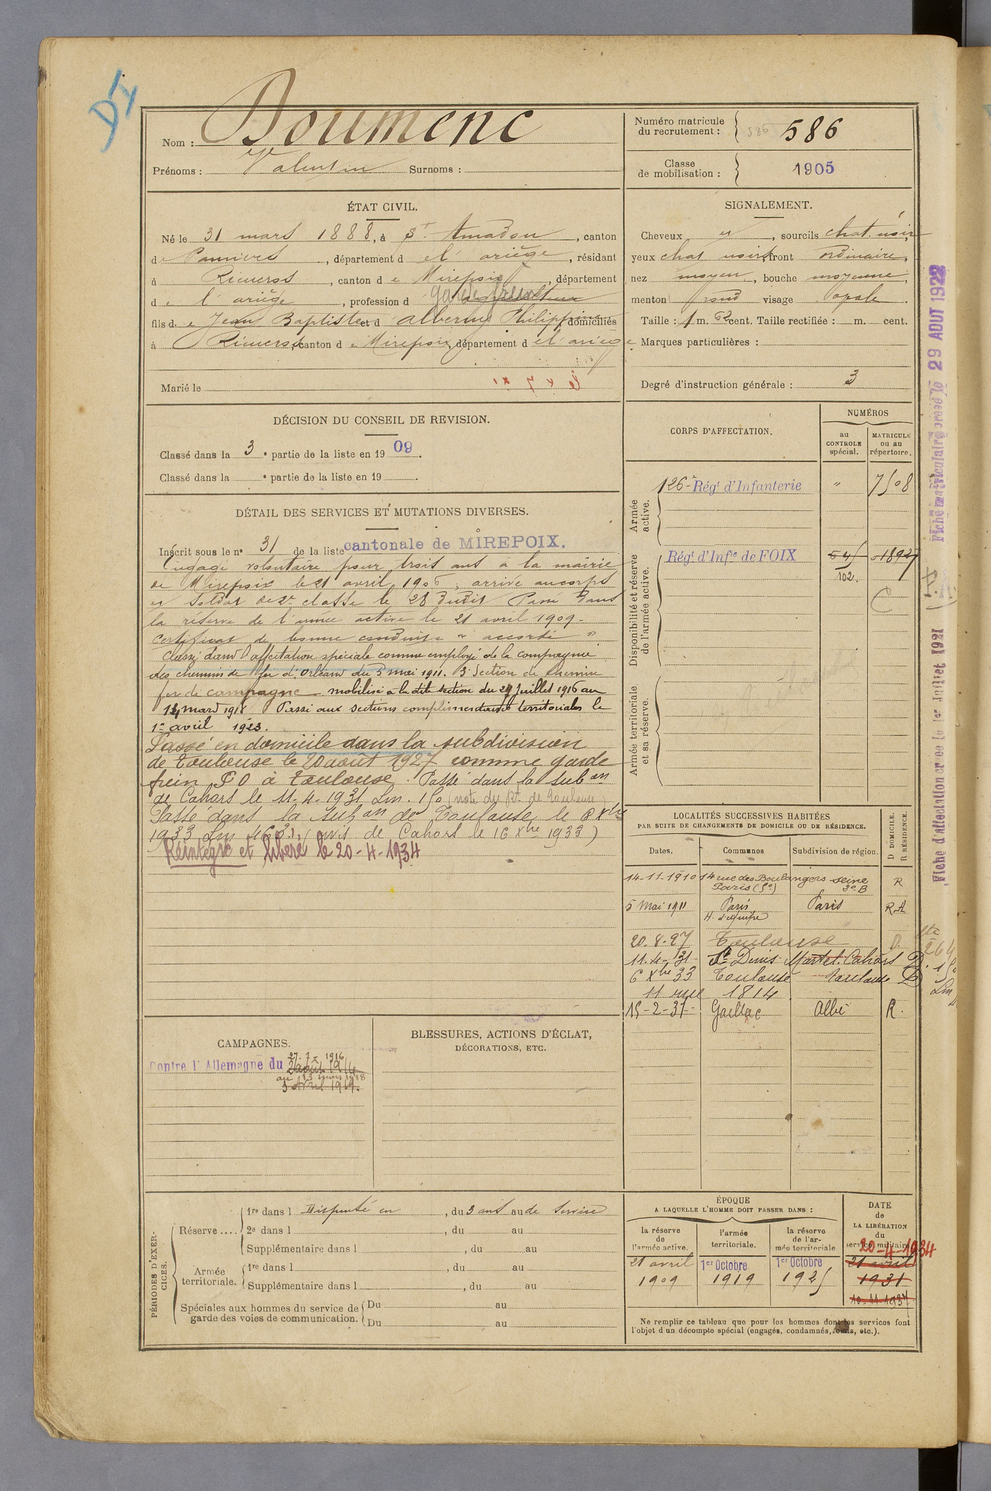 DI
Nom : Doumenc
Prénoms : Valentin Surnoms :
Numéro matricule du recrutement : 586
Classe de mobilisation : 1905
ÉTAT CIVIL.
Né le 31 mars 1888, à St Amadou, canton
de Pamiers, département de l'ariège, résidant
à Rieucros, canton de Mirepoix, département
de l'ariège, profession d
fils de Jean Baptiste et d albernie Philippine domiciliés
à Rieucros, canton de Mirepoix, département de l'ariège
Marié le
SIGNALEMENT.
Cheveux et, sourcils chat. noir
yeux chat noirs front ordinaire,
nez moyen, bouche moyenne,
menton rond visage ovale
Taille : 1 m. cent. Taille rectifiée : m. cent.
Marques particulières :
Degré d'instruction générale : 3
DÉCISION DU CONSEIL DE REVISION.
Classé dans la 3e partie de la liste en 1909.
Classé dans la e partie de la liste en 19 .
CORPS D'AFFECTATION.
NUMÉROS
au CONTROLE spécial.
MATRICULE ou au répertoire.
Armée active.
126e Régt d'Infanterie " 7508
Disponibilité et réserve de l'armée active.
Régt d'Infie de FOIX
102.
C
Armée territoriale et sa réserve.
DÉTAIL DES SERVICES ET MUTATIONS DIVERSES.
Inscrit sous le no 31 de la liste cantonale de MIREPOIX.
Engagé volontaire pour trois ans à la mairie
de Mirepoix le 21 avril 1906, arrivé au corps
et soldat de 2e classe le 28 dudit Passé dans
la réserve de l'armée active le 21 avril 1909.
Certificat de bonne conduite " accordé "
Classé dans l'affectation spéciale comme employé de la compagnie
des chemins de fer d'Orléans du 5 mai 1911. 3e Section de chemins
fer de campagne mobilisé à la dite section du 27 Juillet 1916 au
14 mars 1918 Passé aux sections complémentaires territoriales le
1er avril 1923.
Passé en domicile dans la subdivision
de Toulouse le 20 août 1927 comme garde
frein P.O à Toulouse. Passé dans la subon
de Cahors le 11-4-1931 Lm. 150 (note du Bt de Toulouse)
Passé dans la Subon de Toulouse le 6 Xbre
1933 Lm (avis de Cahors le 16 Xbre 1933)
Réintégré et libéré le 20-4-1934
LOCALITÉS SUCCESSIVES HABITÉES
PAR SUITE DE CHANGEMENTS DE DOMICILE OU DE RÉSIDENCE.
Dates. Communes Subdivision de région. D DOMICILE. R RÉSIDENCE.
14-11-1910 14 rue des Boulangers Paris (5e) Seine 3e B R
5 Mai 1911 Paris Paris R.A
20.8.27 Toulouse D.
11-4-31 St Denis Martel Cahors D.
6 Xbre 33 Toulouse Toulouse D
11 rue 1814
15-2-37 Gaillac Albi R.
CAMPAGNES.
Contre l'Allemagne du 27-7-1916
2 août 1914
au 13 mars 1918
BLESSURES, ACTIONS D'ÉCLAT,
DÉCORATIONS, ETC.
PÉRIODES D'EXERCICES.
Réserve....
1re dans l Dispensé en, du 3 ans au de Service
2e dans l , du au
Supplémentaire dans l , du au
Armée territoriale.
1re dans l , du au
Supplémentaire dans l , du au
Spéciales aux hommes du service de garde des voies de communication.
Du au
Du au
ÉPOQUE
A LAQUELLE L'HOMME DOIT PASSER DANS :
la réserve de l'armée active. l'armée territoriale. la réserve de l'armée territoriale
21 avril 1909
1er Octobre 1919
1er Octobre 1925
DATE de LA LIBÉRATION du service militaire
20-4-1934
21 avril 1931
10.11.1937
Ne remplir ce tableau que pour les hommes dont les services font
l'objet d'un décompte spécial (engagés, condamnés, omis, etc.).
Fiche matriculaire créée le 29 AOUT 1922
Fiche d'affectation créée le 1er Juillet 1921